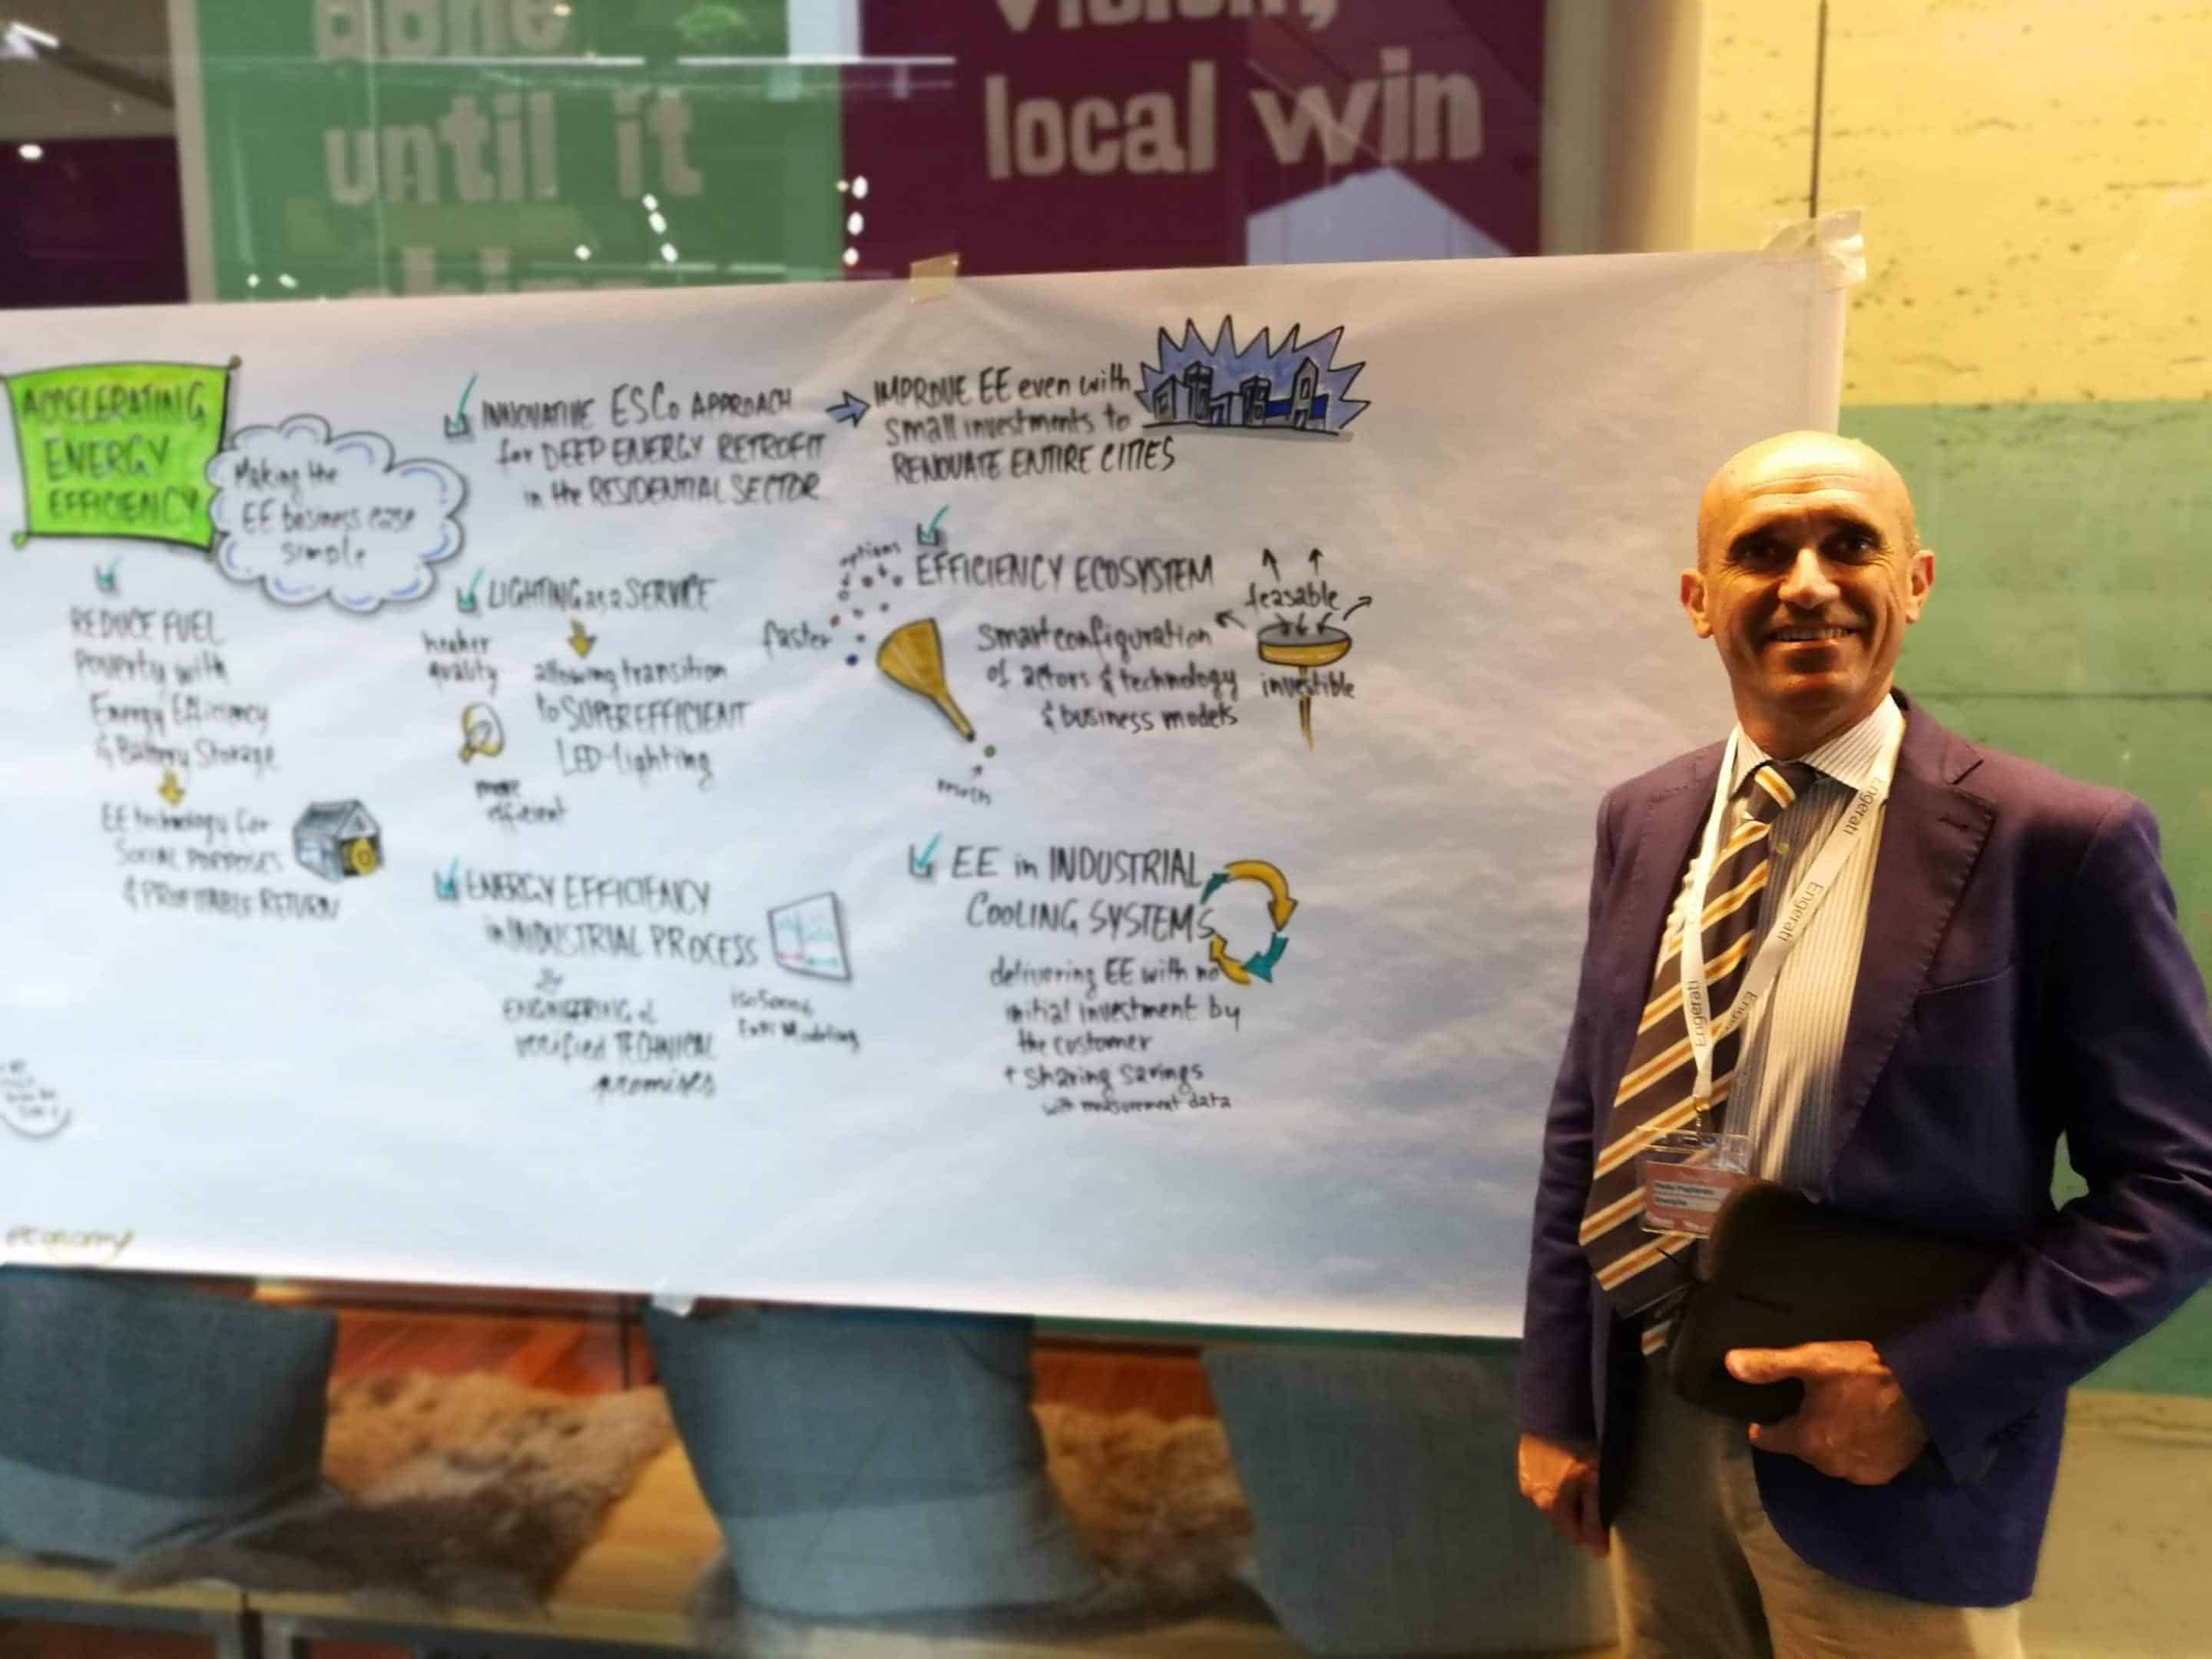 until it
local win
ACCELERATING
ENERGY
EFFICIENCY
Making the
EE business case
simple
REDUCE FUEL
Poverty with
Energy Efficiency
& Battery Storage
EE technology for
SOCIAL PURPOSES
& PROFITABLE RETURN
INNOVATIVE ESCo APPROACH
for DEEP ENERGY RETROFIT
in the RESIDENTIAL SECTOR
IMPROVE EE even with
small investments to
RENOVATE ENTIRE CITIES
LIGHTING as a SERVICE
higher
quality
allowing transition
to SUPEREFFICIENT
LED-lighting
more
efficient
options
faster
EFFICIENCY ECOSYSTEM
smart configuration
of actors & technology
& business models
feasable
investible
ENERGY EFFICIENCY
in INDUSTRIAL PROCESS
ENGINEERING &
verified TECHNICAL
promises
Modeling
EE in INDUSTRIAL
COOLING SYSTEMS
delivering EE with no
initial investment by
the customer
+ sharing savings
with measurement data
economy
Engerati
Engerati
Engerati